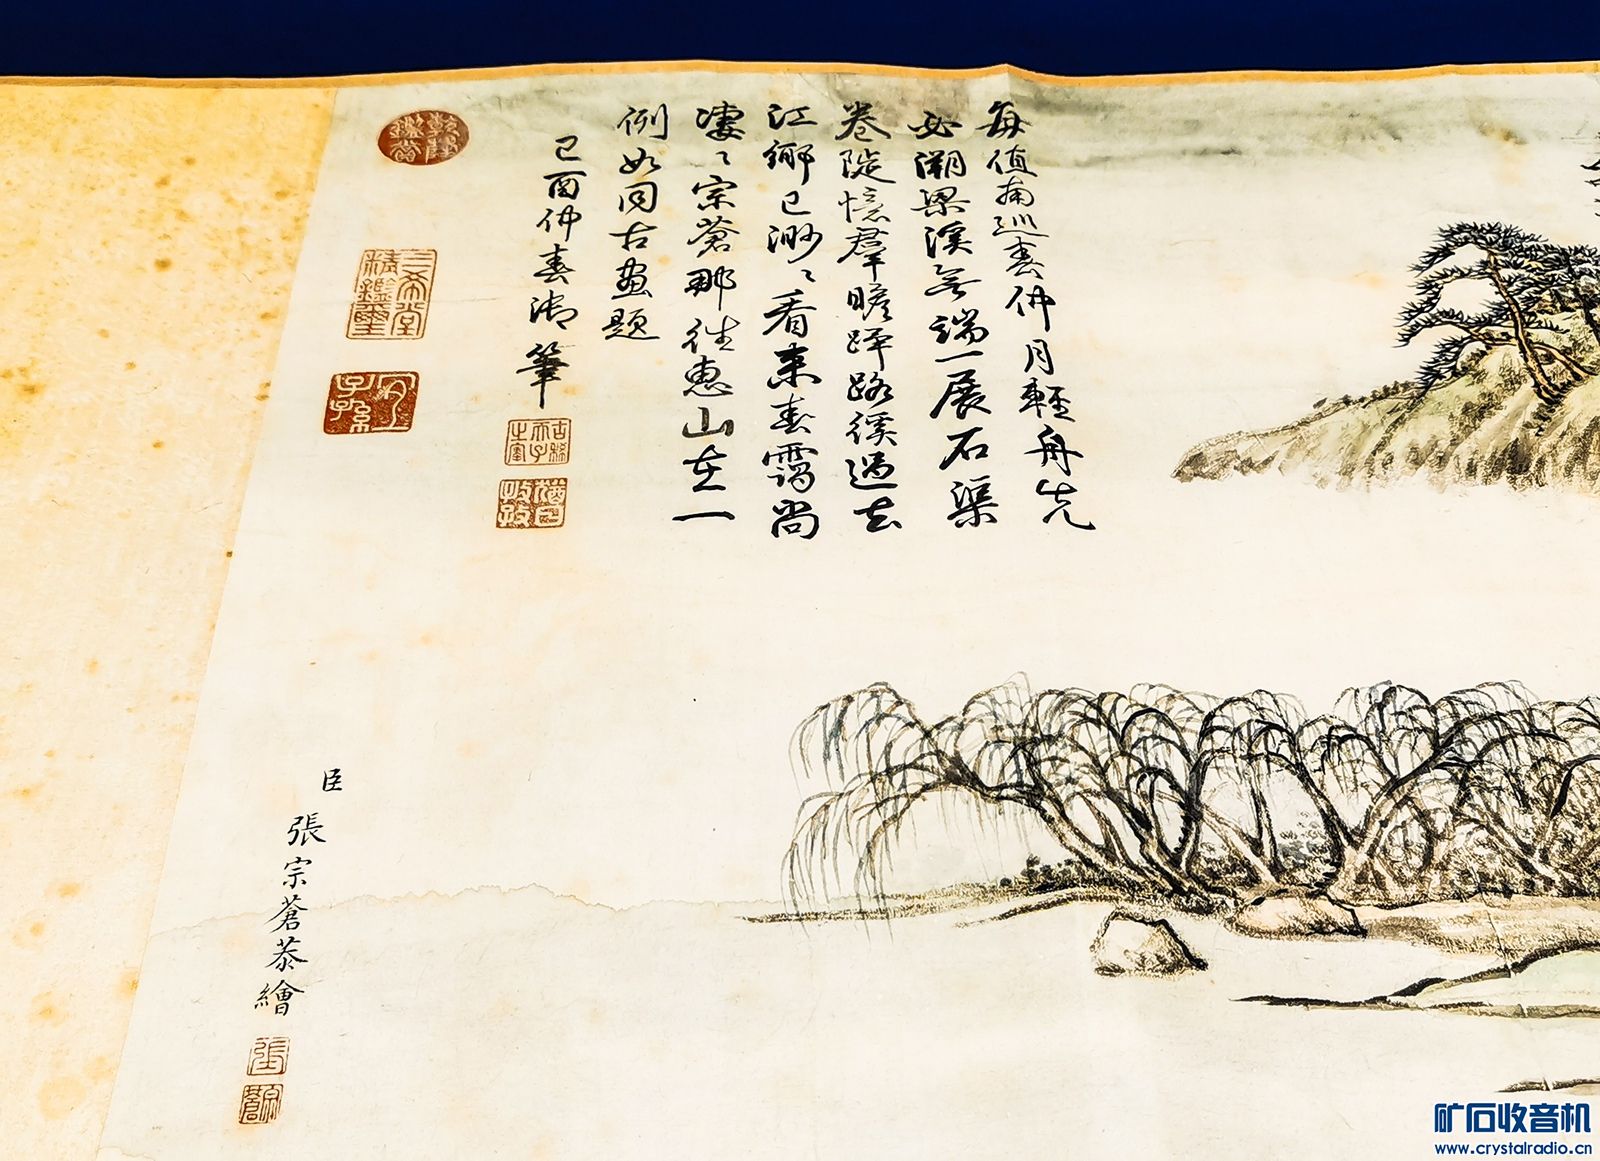 每值南巡春仲月輕舟先
必溯梁溪無端一展石渠
卷陡憶羣瞻蹕路徯過去
江鄉已渺〻看來春靄尚
凄〻宗蒼那往惠山在一
例如同古畫題
己酉仲春御筆
古稀天子之寶
猶日孜孜
乾隆鑑賞
三希堂精鑑璽
宜子孫
臣張宗蒼恭繪
張
宗蒼
矿石收音机
www.crystalradio.cn